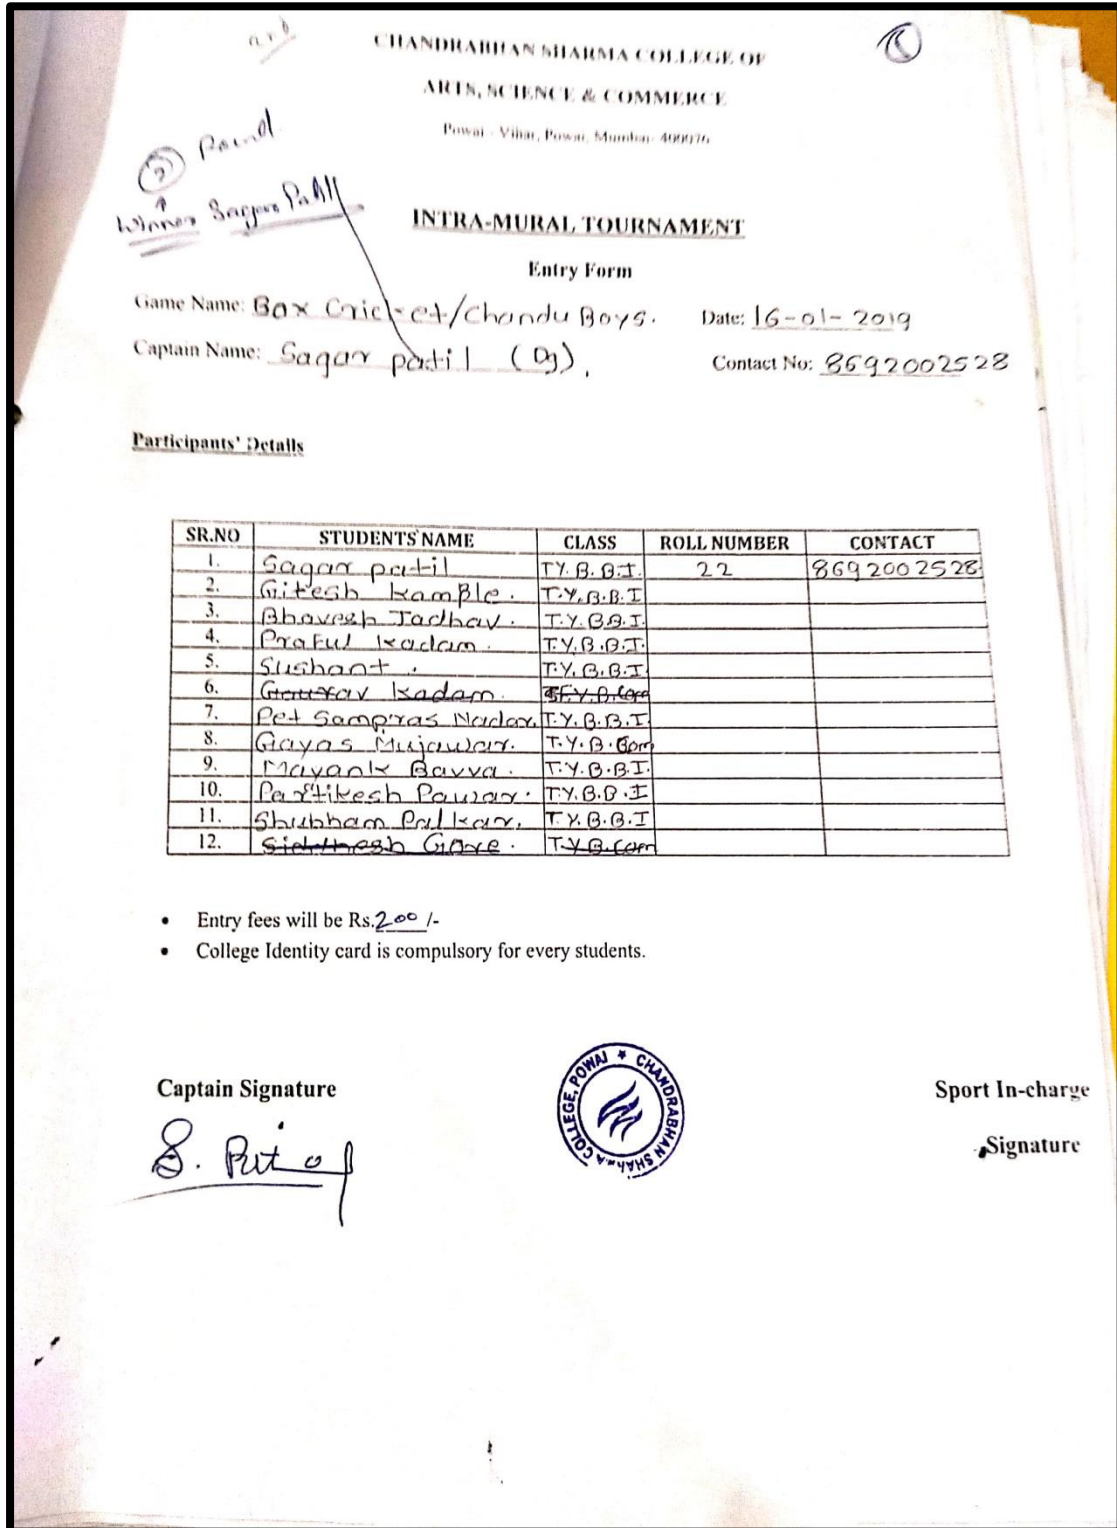 CHANDRABHAN SHARMA COLLEGE OF
ARTS, SCIENCE & COMMERCE
Powai - Vihar, Powai, Mumbai- 400076
② Round
Winner Sagar Patil
INTRA-MURAL TOURNAMENT
Entry Form
Game Name: Box Cricket/Chandu Boys. Date: 16-01-2019
Captain Name: Sagar patil (Dj). Contact No: 8692002528
Participants' Details
SR.NO STUDENTS NAME CLASS ROLL NUMBER CONTACT
1. Sagar patil T.Y.B.B.I. 22 8692002528
2. Gitesh Kamble. T.Y.B.B.I
3. Bhavesh Jadhav. T.Y.B.B.I.
4. Praful Kadam. T.Y.B.B.I.
5. Sushant. T.Y.B.B.I
6. Gaurav Kadam. F.Y.B.Com
7. Pet Sampras Nadar, T.Y.B.B.I
8. Gayas Mujawar. T.Y.B.Com
9. Mayank Bavva. T.Y.B.B.I.
10. Partikesh Pawar. T.Y.B.B.I
11. Shubham Palkar, T.Y.B.B.I
12. Siddhesh Gore. T.Y.B.com
• Entry fees will be Rs.200/-
• College Identity card is compulsory for every students.
Captain Signature
Sport In-charge
Signature
CHANDRABHAN SHARMA COLLEGE, POWAI